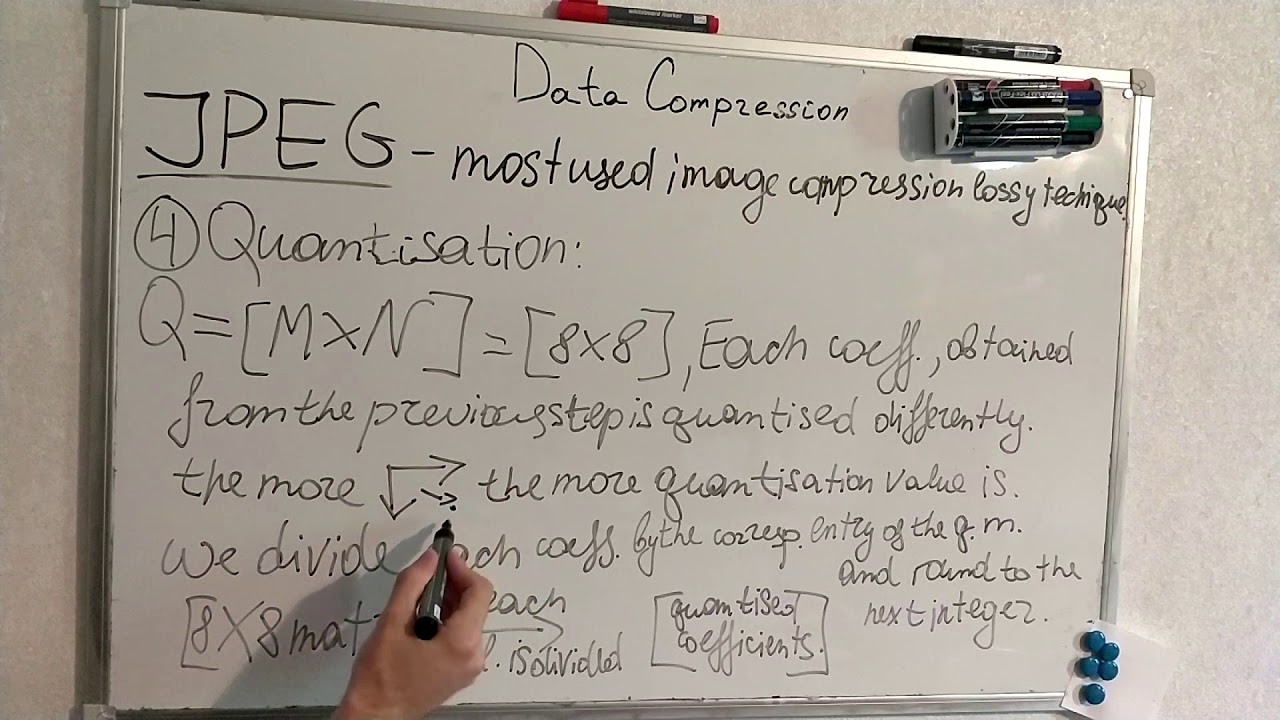 whiteboard marker
Data Compression
JPEG - most used image compression lossy techique
④ Quantisation:
Q = [M×N] = [8×8], Each coeff., obtained
from the previous step is quantised differently.
the more the more quantisation value is.
We divide each coeff. by the corresp. entry of the q. m.
and round to the
next integer.
[8×8 mat each [quantised
is divided coefficients.]